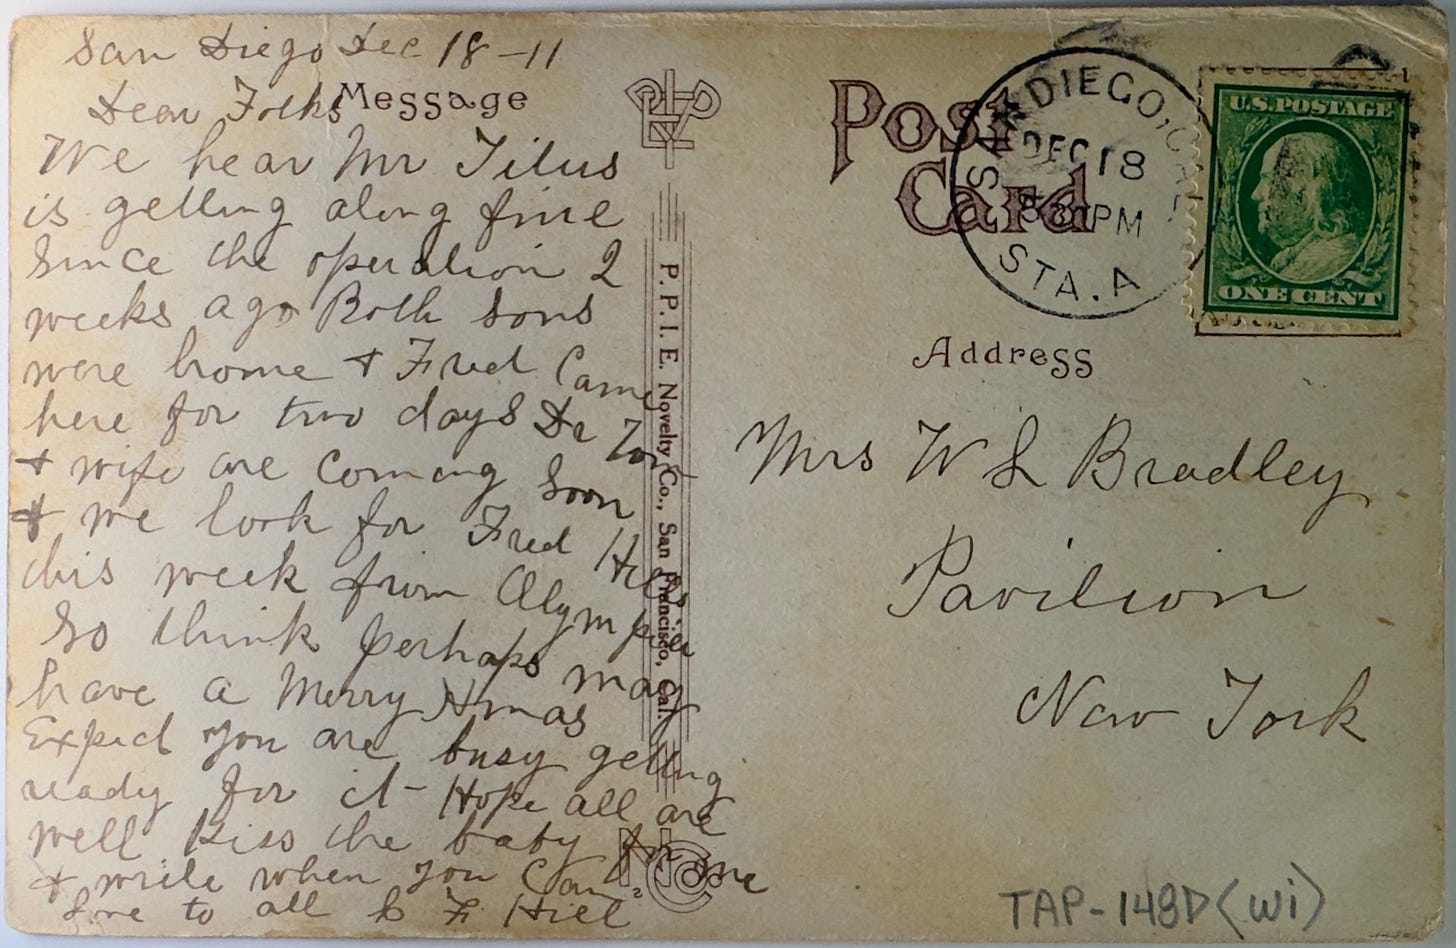 San Diego Dec 18-11
Dear Folks
Message
We hear Mr Titus
is getting along fine
Since the operation 2
weeks ago Both sons
were home + Fred Came
here for two days Dr
+ wife are Coming Soon
+ we look for Fred Hill
this week from Olympia
So think perhaps may
have a Merry Xmas
Expect you are busy getting
ready for it - Hope all are
well Kiss the baby for me
+ write when you Can
Love to all F Hill
P.P.I.E. Novelty Co., San Francisco, Cal.
Post
Card
SAN DIEGO, CAL.
DEC 18
PM
STA. A
U.S. POSTAGE
ONE CENT
Address
Mrs W L Bradley
Pavilion
New York
TAP-148D (Wi)